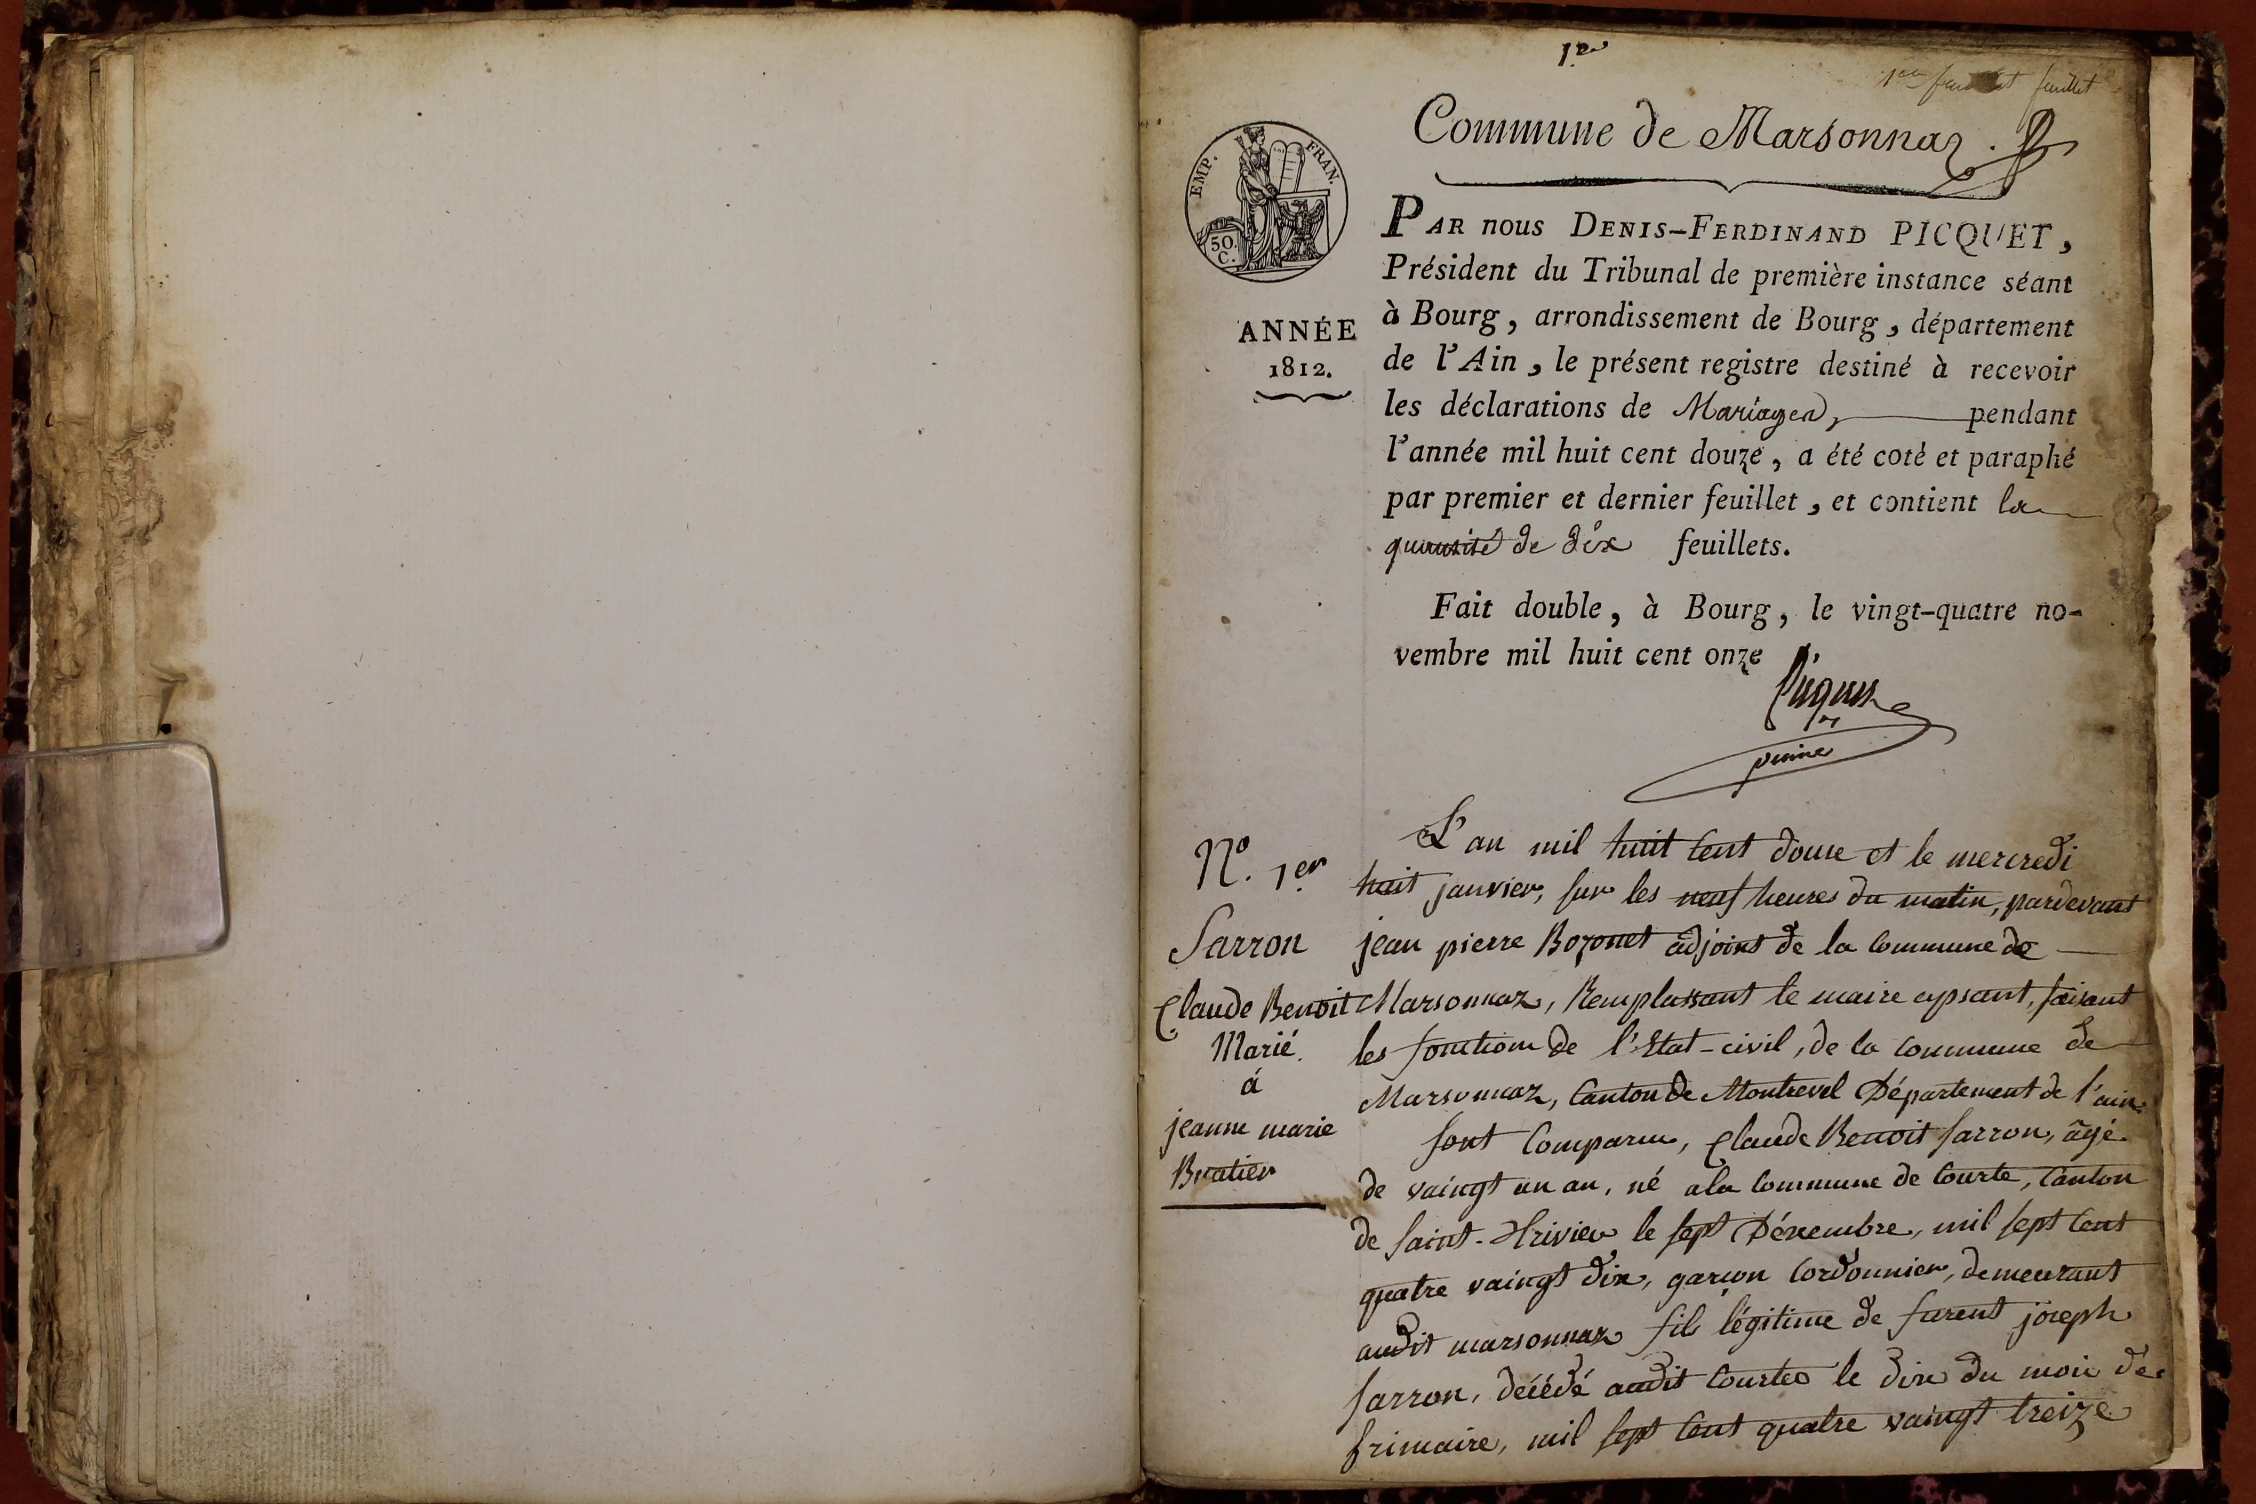 1er
1er feuillet
Commune de Marsonnaz.
EMP. FRAN.
50. C.
ANNÉE
1812.
PAR nous DENIS-FERDINAND PICQUET,
Président du Tribunal de première instance séant
à Bourg, arrondissement de Bourg, département
de l'Ain, le présent registre destiné à recevoir
les déclarations de Mariages, pendant
l'année mil huit cent douze, a été coté et paraphé
par premier et dernier feuillet, et contient la
quantité de dix feuillets.
Fait double, à Bourg, le vingt-quatre no-
vembre mil huit cent onze
Picquet
N.o 1.er
Sarron
Claude Benoit
Marié
á
jeanne marie
Bratier
L'an mil huit Cent douse et le mercredi
huit janvier, sur les neuf heures du matin, pardevant
jean pierre Bozonet adjoint de la Commune de
Marsonnaz, Remplassant le maire apsant, faisant
les fonctions de l'Etat-civil, de la Commune de
Marsonnaz, Canton de Montrevel Département de l'ain.
sont Comparus, Claude Benoit Sarron, âgé
de vaingt un an, né a la Commune de Courte, Canton
de Saint-Trivier le sept Décembre, mil sept Cent
quatre vaingt dix, garçon Cordonnier, demeurant
audit marsonnaz fils légitime de furent joseph
Sarron, décédé audit Courtes le dix du mois de
frimaire, mil sept Cent quatre vaingt treize